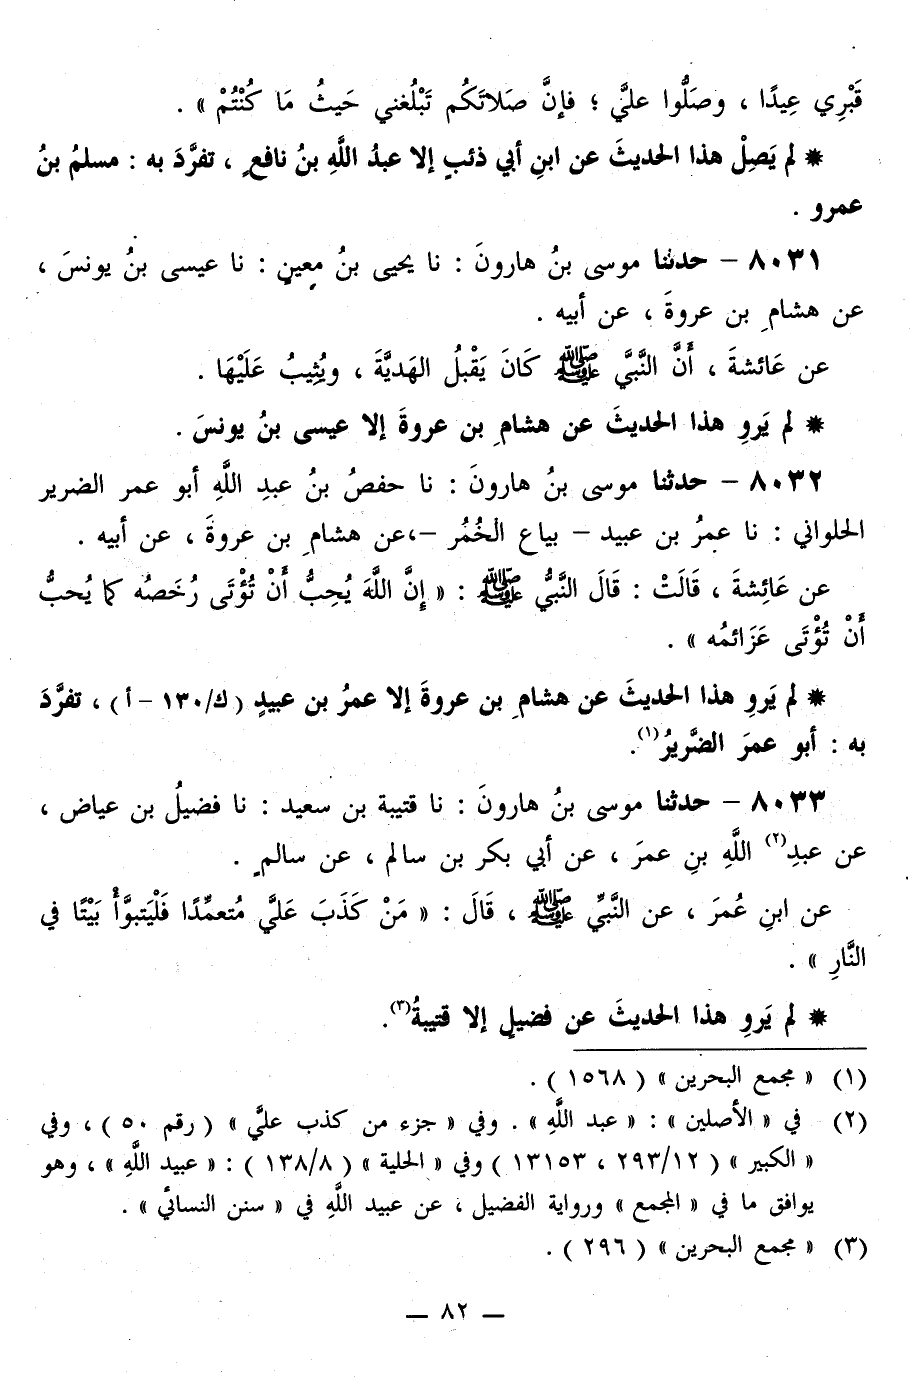 قَبْرِي عِيدًا ، وصَلُّوا عليَّ ؛ فإنَّ صَلاتَكُم تَبْلُغني حَيثُ مَا كُنْتُمْ » .
* لم يَصِلْ هذا الحديثَ عن ابنِ أبي ذئبٍ إلا عبدُ اللَّهِ بنُ نافعٍ ، تفرَّدَ به : مسلمُ بنُ
عمرو .
٨٠٣١ – حدثنا موسى بنُ هارونَ : نا يحيى بنُ معينٍ : نا عيسى بنُ يونسَ ،
عن هشامِ بن عروةَ ، عن أبيه .
عن عَائشةَ ، أَنَّ النَّبيَّ ﷺ كَانَ يَقْبلُ الهَديَّةَ ، ويُثِيبُ عَلَيْهَا .
* لم يَروِ هذا الحديثَ عن هشامِ بن عروةَ إلا عيسى بنُ يونسَ .
٨٠٣٢ – حدثنا موسى بنُ هارونَ : نا حفصُ بنُ عبدِ اللَّهِ أبو عمر الضرير
الحلواني : نا عمرُ بن عبيد – بياع الخُمُر –،عن هشامِ بن عروةَ ، عن أبيه .
عن عَائِشةَ ، قَالَتْ : قَالَ النَّبيُّ ﷺ : « إِنَّ اللَّهَ يُحِبُّ أَنْ تُؤْتَى رُخَصُه كما يُحبُّ
أَنْ تُؤْتَى عَزَائمُه » .
* لم يَروِ هذا الحديثَ عن هشامِ بن عروةَ إلا عمرُ بن عبيدٍ ( ك/١٣٠ – أ ) ، تفرَّدَ
به : أبو عمرَ الضَّريرُ(١).
٨٠٣٣ – حدثنا موسى بنُ هارونَ : نا قتيبة بن سعيد : نا فضيلُ بن عياض ،
عن عبدِ(٢) اللَّهِ بنِ عمرَ ، عن أبي بكر بن سالم ، عن سالمٍ .
عن ابنِ عُمرَ ، عن النَّبيِّ ﷺ ، قَالَ : « مَنْ كَذَبَ عَليَّ مُتعمِّدًا فَلْيَتبوَّأْ بَيْتًا في
النَّارِ » .
* لم يَروِ هذا الحديثَ عن فضيلٍ إلا قتيبةُ(٣).
(١) « مجمع البحرين » ( ١٥٦٨ ) .
(٢) في « الأصلين » : « عبد اللَّهِ » . وفي « جزء من كذب عليَّ » ( رقم ٥٠ ) ، وفي
« الكبير » ( ٢٩٣/١٢ ، ١٣١٥٣ ) وفي « الحلية » ( ١٣٨/٨ ) : « عبيد اللَّهِ » ، وهو
يوافق ما في « المجمع » ورواية الفضيل ، عن عبيد اللَّهِ في « سنن النسائي » .
(٣) « مجمع البحرين » ( ٢٩٦ ) .
— ٨٢ —